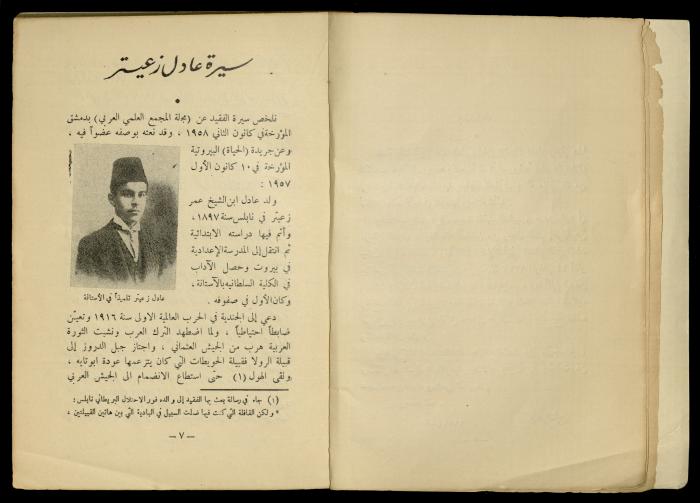 سيرة عادل زعيتر
نلخص سيرة الفقيد عن (مجلة المجمع العلمي العربي) بدمشق
المؤرخة في كانون الثاني ١٩٥٨ ، وقد نعته بوصفه عضواً فيه ،
وعن جريدة (الحياة) البيروتية
المؤرخة في ١٠ كانون الأول
١٩٥٧ :
ولد عادل ابن الشيخ عمر
زعيتر في نابلس سنة ١٨٩٧ ،
وأتم فيها دراسته الابتدائية
ثم انتقل إلى المدرسة الإعدادية
في بيروت وحصل الآداب
في الكلية السلطانية بالآستانة ،
وكان الأول في صفوفه .
عادل زعيتر تلميذاً في الآستانة
دعي إلى الجندية في الحرب العالمية الاولى سنة ١٩١٦ وتعيّن
ضابطاً احتياطياً ، ولما اضطهد الترك العرب ونشبت الثورة
العربية هرب من الجيش العثماني ، واجتاز جبل الدروز إلى
قبيلة الرولا فقبيلة الحويطات التي كان يتزعمها عودة ابو تايه ،
ولقى الهول (١) حتى استطاع الانضمام الى الجيش العربي
(١) جاء في رسالة بعث بها الفقيد إلى والده فور الاحتلال البريطاني نابلس :
« ولكن القافلة التي كنت فيها ضلت السبيل في البادية التي بين هاتين القبيلتين ،
— ٧ —